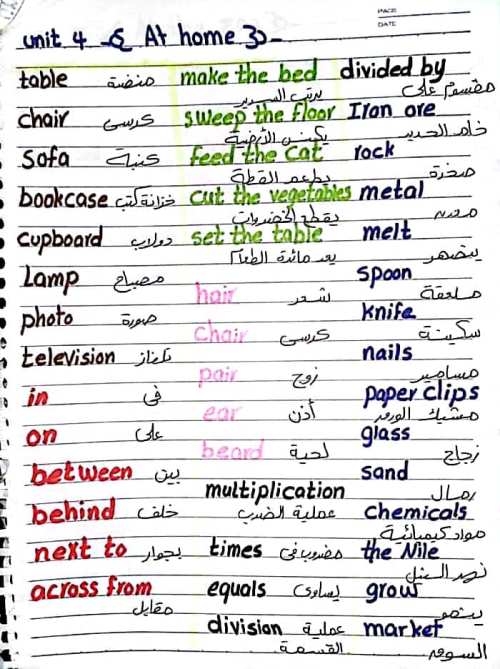 PAGE
DATE
unit 4 At home
table منضدة make the bed يرتب السرير divided by مقسوم على
chair كرسى sweep the floor يكنس الأرضية Iron ore خام الحديد
sofa كنبة feed the cat يطعم القطة rock صخرة
bookcase خزانة كتب cut the vegetables يقطع الخضروات metal معدن
cupboard دولاب set the table يعد مائدة الطعام melt ينصهر
Lamp مصباح hair شعر spoon ملعقة
photo صورة chair كرسى knife سكينة
television تلفاز pair زوج nails مسامير
in فى ear أذن paper clips مشبك الورق
on على beard لحية glass زجاج
between بين multiplication عملية الضرب sand رمال
behind خلف chemicals مواد كيميائية
next to بجوار times مضروب فى the Nile نهر النيل
across from مقابل equals يساوى grow ينمو
division عملية القسمة market السوق